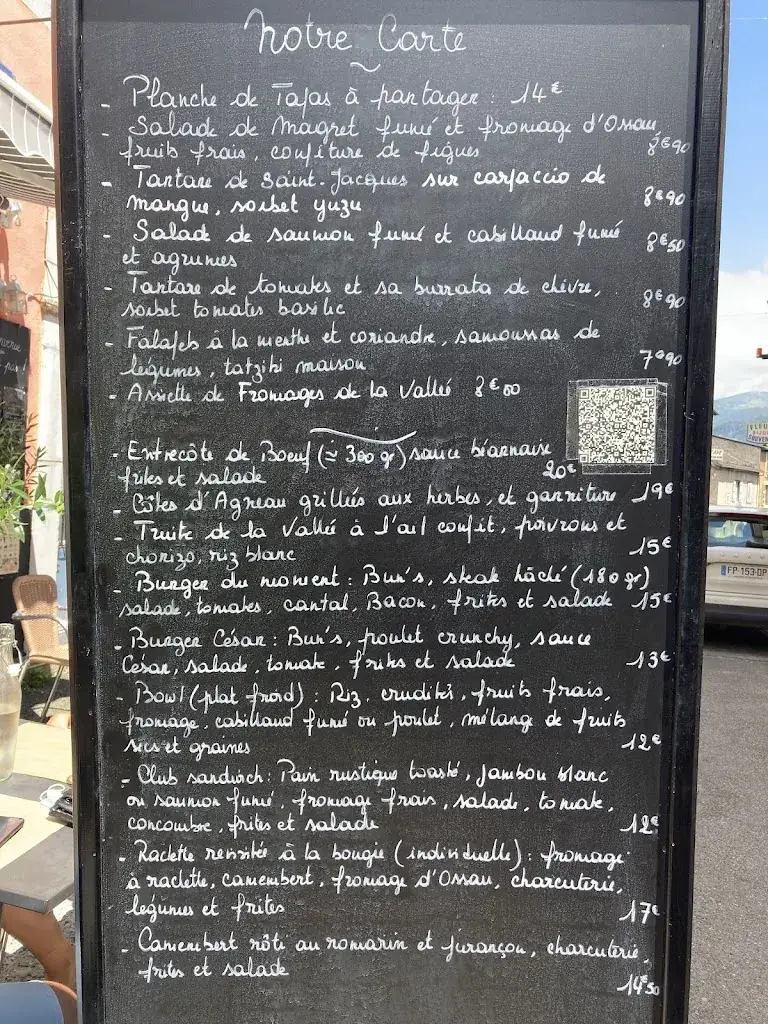 Notre Carte
- Planche de Tapas à partager : 14€
- Salade de Magret fumé et fromage d'Ossau,
fruits frais, confiture de figues 8€90
- Tartare de Saint-Jacques sur carpaccio de
mangue, sorbet yuzu 8€90
- Salade de saumon fumé et cabillaud fumé
et agrumes 8€50
- Tartare de tomates et sa burrata de chèvre,
sorbet tomates basilic 8€90
- Falafels à la menthe et coriandre, samoussas de
légumes, tatziki maison 7€90
- Assiette de Fromages de la Vallée 8€50
- Entrecôte de Boeuf (≃ 300 gr) sauce béarnaise
frites et salade 20€
- Côtes d'Agneau grillées aux herbes, et garniture 19€
- Truite de la Vallée à l'ail confit, poivrons et
chorizo, riz blanc 15€
- Burger du moment : Bun's, steak hâché (180 gr)
salade, tomates, cantal, Bacon, frites et salade 15€
- Burger César : Bun's, poulet crunchy, sauce
César, salade, tomate, frites et salade 13€
- Bowl (plat froid) : Riz, crudités, fruits frais,
fromage, cabillaud fumé ou poulet, mélange de fruits
secs et graines 12€
- Club sandwich : Pain rustique toasté, jambon blanc
ou saumon fumé, fromage frais, salade, tomate,
concombre, frites et salade 12€
- Raclette revisitée à la bougie (individuelle) : fromage
à raclette, camembert, fromage d'Ossau, charcuterie,
légumes et frites 17€
- Camembert rôti au romarin et jurançon, charcuterie,
frites et salade 14€50
FP-153-DP